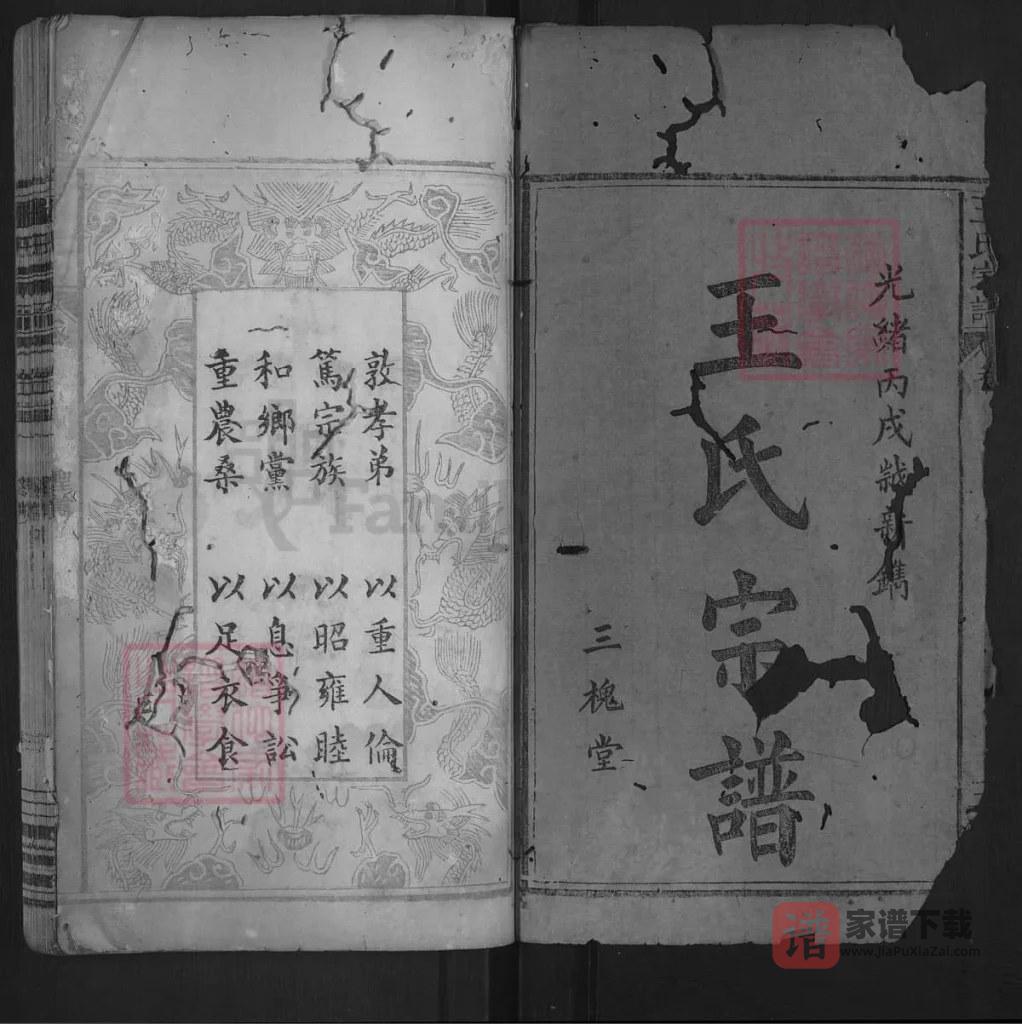 光緒丙戌歲新鐫
王氏宗譜
三槐堂
敦孝弟 以重人倫
篤宗族 以昭雍睦
和鄉黨 以息爭訟
重農桑 以足衣食
家谱下载
www.JiaPuXiaZai.com
谱